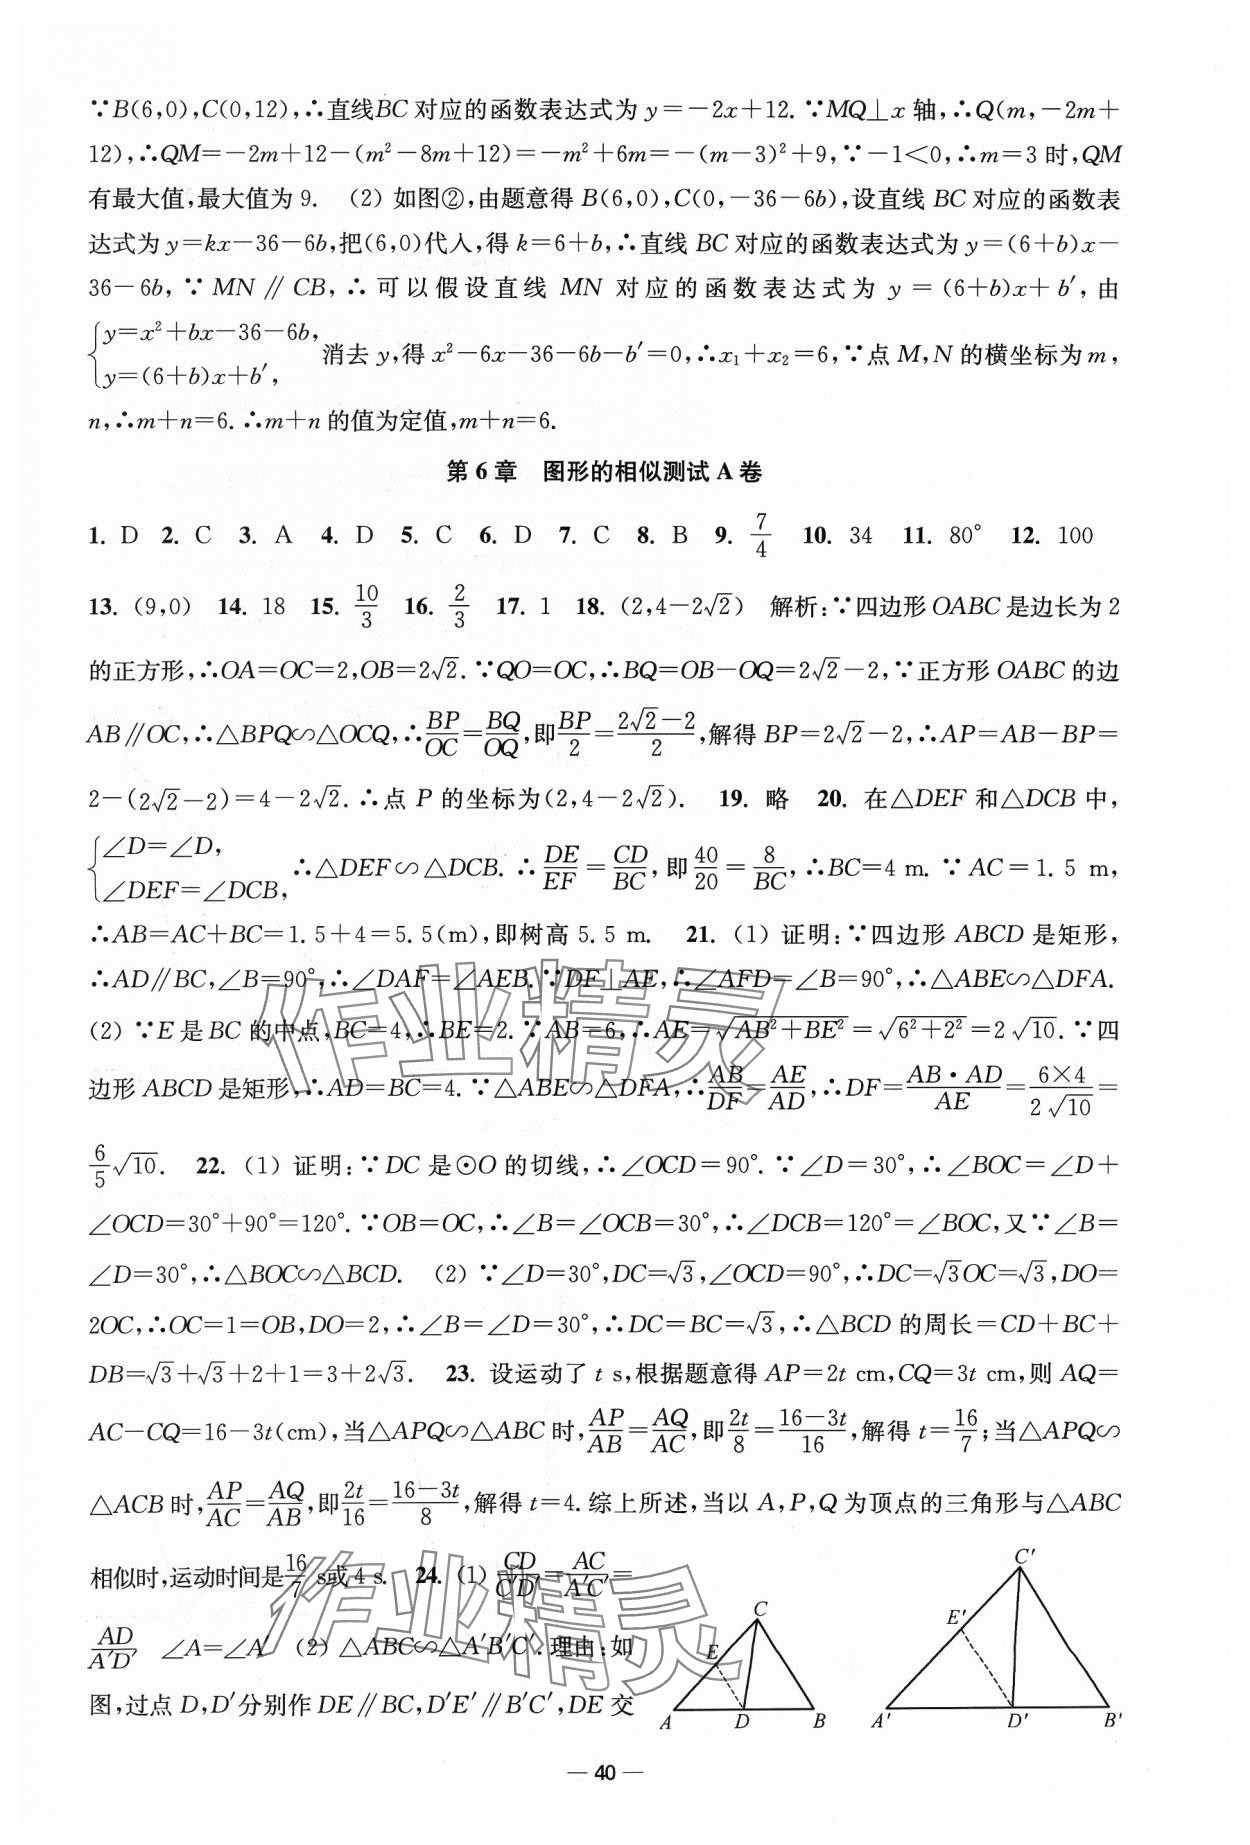 ∵B(6,0),C(0,12),∴直线BC 对应的函数表达式为 y=-2x+12. ∵MQ⊥x 轴,∴Q(m,-2m+
12),∴QM=-2m+12-(m²-8m+12)=-m²+6m=-(m-3)²+9,∵-1<0,∴m=3 时,QM
有最大值,最大值为 9. (2) 如图②,由题意得 B(6,0),C(0,-36-6b),设直线 BC 对应的函数表
达式为 y=kx-36-6b,把(6,0)代人,得 k=6+b,∴直线 BC 对应的函数表达式为 y=(6+b)x-
36-6b, ∵ MN ∥ CB, ∴ 可以假设直线 MN 对应的函数表达式为 y = (6+b)x+b′, 由
{y=x²+bx-36-6b, y=(6+b)x+b′, 消去 y,得 x²-6x-36-6b-b′=0,∴x₁+x₂=6,∵点 M,N 的横坐标为 m,
n,∴m+n=6. ∴m+n 的值为定值,m+n=6.
第 6 章 图形的相似测试 A 卷
1. D 2. C 3. A 4. D 5. C 6. D 7. C 8. B 9. 7/4 10. 34 11. 80° 12. 100
13. (9,0) 14. 18 15. 10/3 16. 2/3 17. 1 18. (2,4-2√2) 解析:∵四边形 OABC 是边长为 2
的正方形,∴OA=OC=2,OB=2√2. ∵QO=OC,∴BQ=OB-OQ=2√2-2,∵正方形 OABC 的边
AB∥OC,∴△BPQ∽△OCQ,∴BP/OC=BQ/OQ,即BP/2=(2√2-2)/2,解得 BP=2√2-2,∴AP=AB-BP=
2-(2√2-2)=4-2√2. ∴点 P 的坐标为(2,4-2√2). 19. 略 20. 在△DEF 和△DCB 中,
{∠D=∠D, ∠DEF=∠DCB, ∴△DEF∽△DCB. ∴DE/EF=CD/BC, 即40/20=8/BC,∴BC=4 m. ∵ AC=1.5 m,
∴AB=AC+BC=1.5+4=5.5(m),即树高 5.5 m. 21. (1) 证明:∵四边形 ABCD 是矩形,
∴AD∥BC,∠B=90°,∴∠DAF=∠AEB. ∵DF⊥AE,∴∠AFD=∠B=90°,∴△ABE∽△DFA.
(2) ∵E 是 BC 的中点,BC=4,∴BE=2. ∵AB=6,∴AE=√(AB²+BE²)=√(6²+2²)=2√10. ∵四
边形 ABCD 是矩形,∴AD=BC=4. ∵△ABE∽△DFA,∴AB/DF=AE/AD,∴DF=(AB·AD)/AE=(6×4)/(2√10)=
6/5√10. 22. (1) 证明:∵DC 是⊙O 的切线,∴∠OCD=90°. ∵∠D=30°,∴∠BOC=∠D+
∠OCD=30°+90°=120°. ∵OB=OC,∴∠B=∠OCB=30°,∴∠DCB=120°=∠BOC,又∵∠B=
∠D=30°,∴△BOC∽△BCD. (2) ∵∠D=30°,DC=√3,∠OCD=90°,∴DC=√3OC=√3,DO=
2OC,∴OC=1=OB,DO=2,∴∠B=∠D=30°,∴DC=BC=√3,∴△BCD 的周长=CD+BC+
DB=√3+√3+2+1=3+2√3. 23. 设运动了 t s,根据题意得 AP=2t cm,CQ=3t cm,则 AQ=
AC-CQ=16-3t(cm),当△APQ∽△ABC 时,AP/AB=AQ/AC,即2t/8=(16-3t)/16,解得 t=16/7;当△APQ∽
△ACB 时,AP/AC=AQ/AB,即2t/16=(16-3t)/8,解得 t=4. 综上所述,当以 A,P,Q 为顶点的三角形与△ABC
相似时,运动时间是16/7 s或4 s. 24. (1) CD/C′D′=AC/A′C′=
AD/A′D′ ∠A=∠A′ (2) △ABC∽△A′B′C′. 理由:如
图,过点 D,D′分别作 DE∥BC,D′E′∥B′C′,DE 交
C
E
A D B
C′
E′
A′ D′ B′
作业精灵
作业精灵
— 40 —